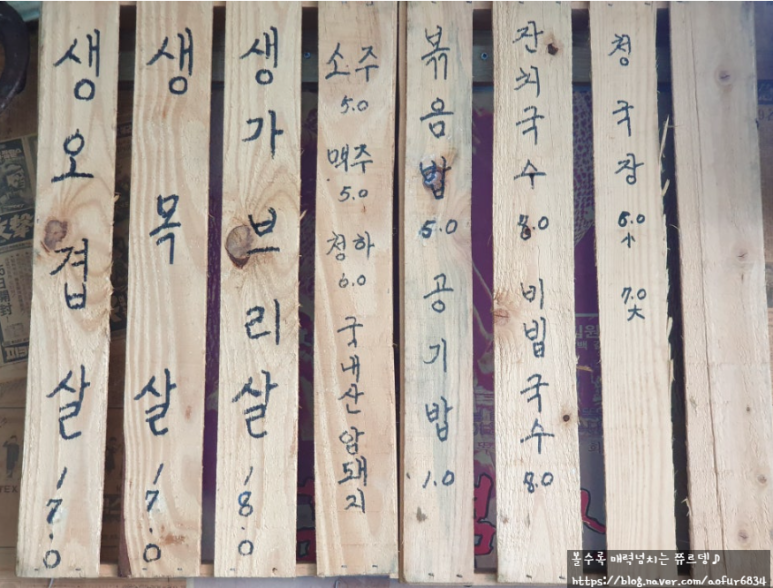 생오겹살 17.0
생목살 17.0
생가브리살 18.0
소주 5.0
맥주 5.0
청하 6.0
국내산암돼지
볶음밥 5.0
공기밥 1.0
잔치국수 8.0
비빔국수 8.0
청국장 6.0 小
7.0 大
볼수록 매력넘치는 쮸르뎅♪
https://blog.naver.com/aofur6834